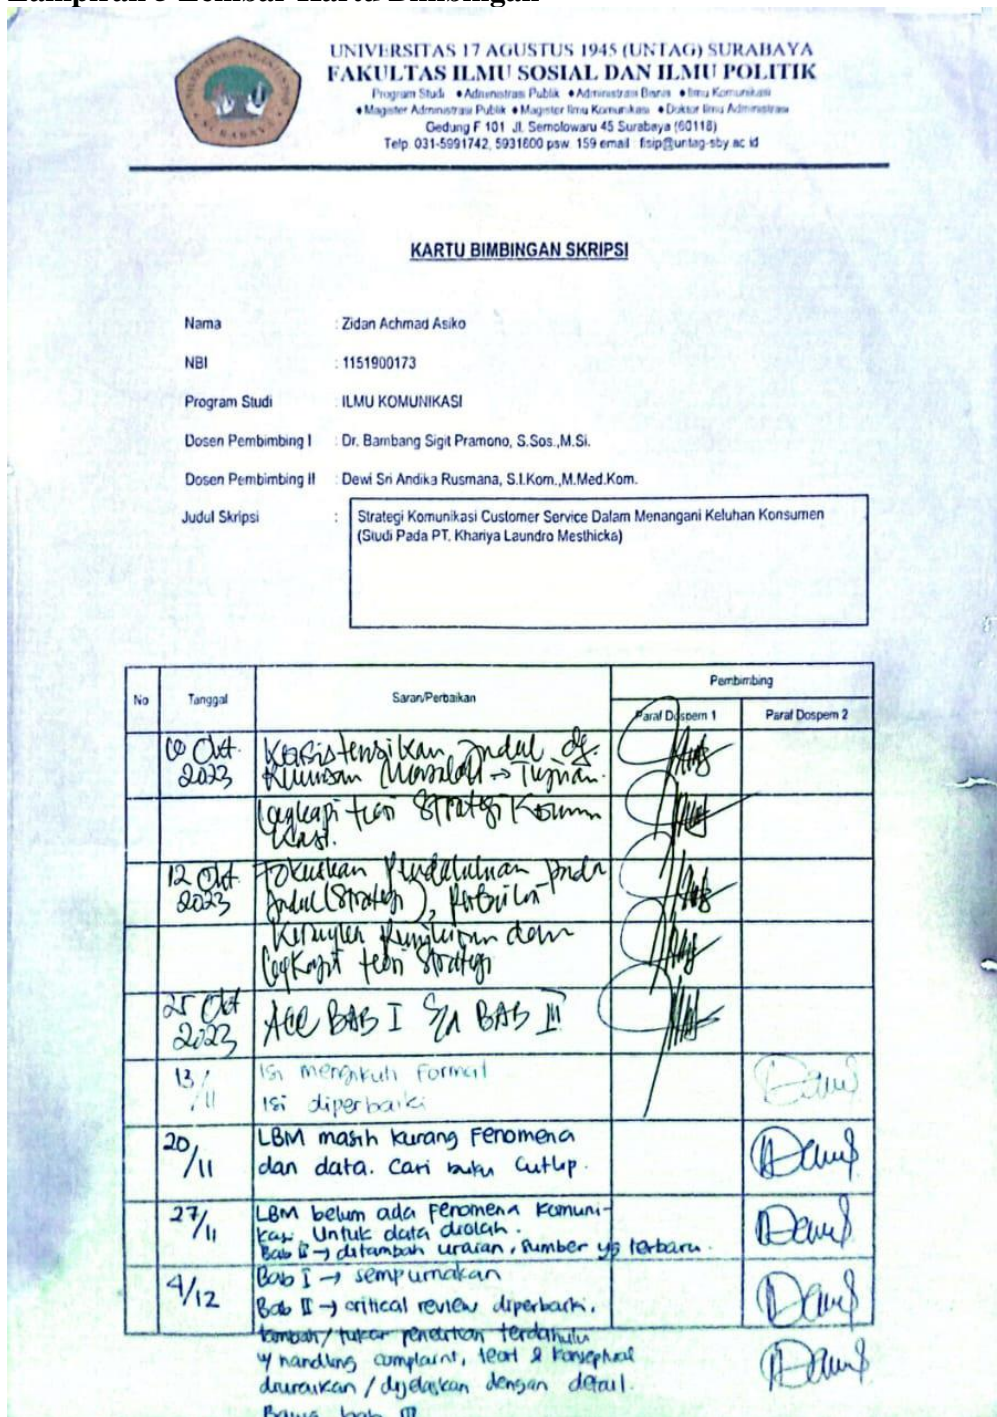 Lampiran 3 Lembar Kartu Bimbingan
UNIVERSITAS 17 AGUSTUS 1945 (UNTAG) SURABAYA
FAKULTAS ILMU SOSIAL DAN ILMU POLITIK
Program Studi ♦Administrasi Publik ♦Administrasi Bisnis ♦Ilmu Komunikasi
♦Magister Administrasi Publik ♦Magister Ilmu Komunikasi ♦Doktor Ilmu Administrasi
Gedung F 101 Jl. Semolowaru 45 Surabaya (60118)
Telp. 031-5991742, 5931800 psw. 159 email : fisip@untag-sby.ac.id
SURABAYA
KARTU BIMBINGAN SKRIPSI
Nama : Zidan Achmad Asiko
NBI : 1151900173
Program Studi : ILMU KOMUNIKASI
Dosen Pembimbing I : Dr. Bambang Sigit Pramono, S.Sos.,M.Si.
Dosen Pembimbing II : Dewi Sri Andika Rusmana, S.I.Kom.,M.Med.Kom.
Judul Skripsi : Strategi Komunikasi Customer Service Dalam Menangani Keluhan Konsumen
(Studi Pada PT. Khariya Laundro Mesthicka)
No Tanggal Saran/Perbaikan Pembimbing
Paraf Dospem 1 Paraf Dospem 2
Okt Konsistensikan Judul dg.
2023 Rumusan Masalah → Tujuan.
Lengkapi teori Strategi Komuni
kasi.
12 Okt Fokuskan Pendahuluan pada
2023 Judul (Strategi),
dan
Lengkapi teori strategi
25 Okt
2023 ACC BAB I s/d BAB III
13/11 Isi mengikuti format
Isi diperbaiki
20/11 LBM masih kurang Fenomena
dan data. Cari buku Cutlip.
27/11 LBM belum ada Fenomena Komuni-
kasi. Untuk data diolah.
Bab II → ditambah uraian, sumber yg terbaru.
4/12 Bab I → sempurnakan
Bab II → critical review diperbaiki,
tambah/tukar penelitian terdahulu
y handling complaint, teori & konseptual
diuraikan / dijelaskan dengan detail.
Bawa bab III